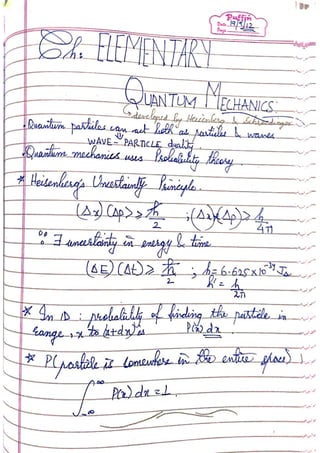 Puffin
Date 19/9/12
Page
Ch: ELEMENTARY
QUANTUM MECHANICS
→ developed by Heisenberg & Schrodinger
• Quantum particles can act both as particles & waves
WAVE - PARTICLE duality.
• Quantum mechanics uses Probability theory
* Heisenberg's Uncertainty Principle.
(Δx)(Δp) ≥ ħ/2 ; (Δx)(Δp) ≥ h/4π
∃ uncertainty in energy & time
(ΔE)(Δt) ≥ ħ/2 ; h = 6.625 × 10⁻³⁴ Js
ħ = h/2π
* In 1D : probability of finding the particle in
range, x to (x+dx) is P(x) dx
* P(particle is somewhere in the entire space) :
∫_{-∞}^{∞} P(x) dx = 1.